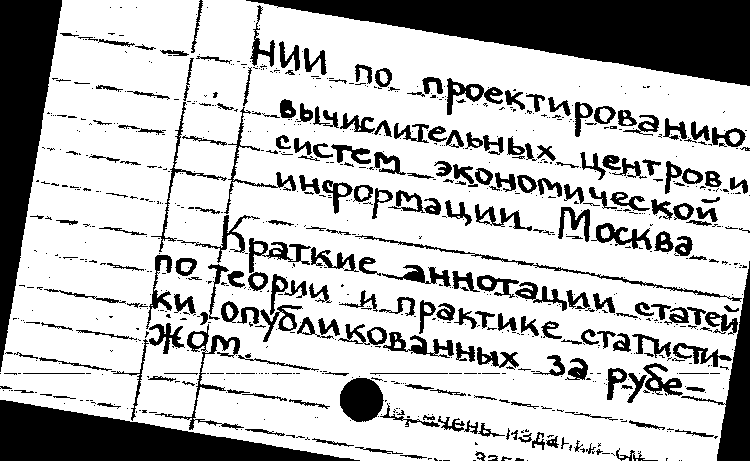 НИИ по проектированию
вычислительных центров и
систем экономической
информации. Москва
Краткие аннотации статей
по теории и практике статисти-
ки, опубликованных за рубе-
жом.
изданий см